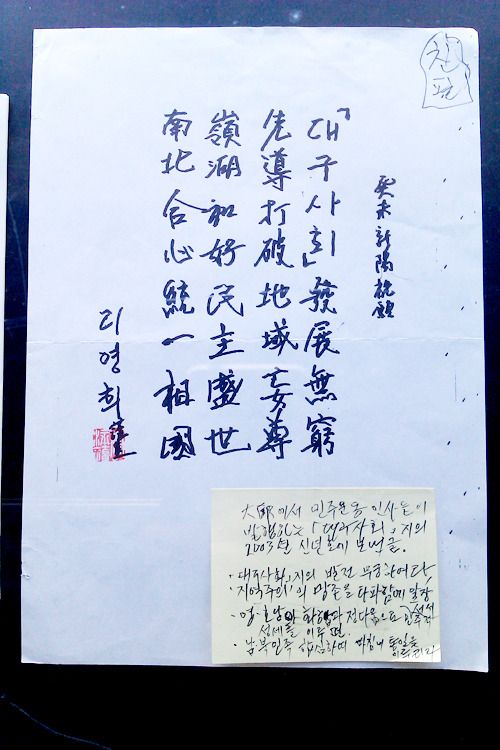 친필
癸未新陽祝願
「대구사회」發展無窮
先導打破地域妄尊
嶺湖和好民主盛世
南北合心統一相國
리영희
大邱에서 민주운동 인사들이
발행하는 「대구사회」지의
2003년 신년호에 보낸 글.
· 대구사회」지의 발전 무궁하여라,
· 지역주의의 망존을 타파함에 앞장
· 영·호남의 화합과
성세를 이루면.
· 남북민족 합심하여 마침내 통일을